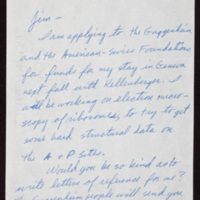 Jim -
I am applying to the Guggenheim
and the American-Swiss Foundations
for funds for my stay in Geneva
next fall with Kellenberger. I
will be working on electron micro-
scopy of ribosomes, to try to get
some hard structural data on
the A + P sites.
Would you be so kind as to
write letters of reference for me?
The Guggenheim people will send you